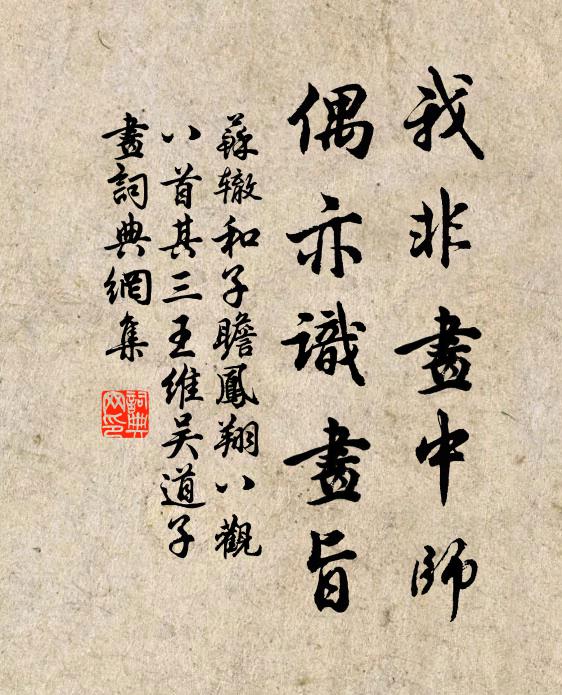 我非畫中師
偶亦識畫旨
蘇辙和子瞻鳳翔八觀
八首其三王維吴道子
畫詞典網集
詞典
网印